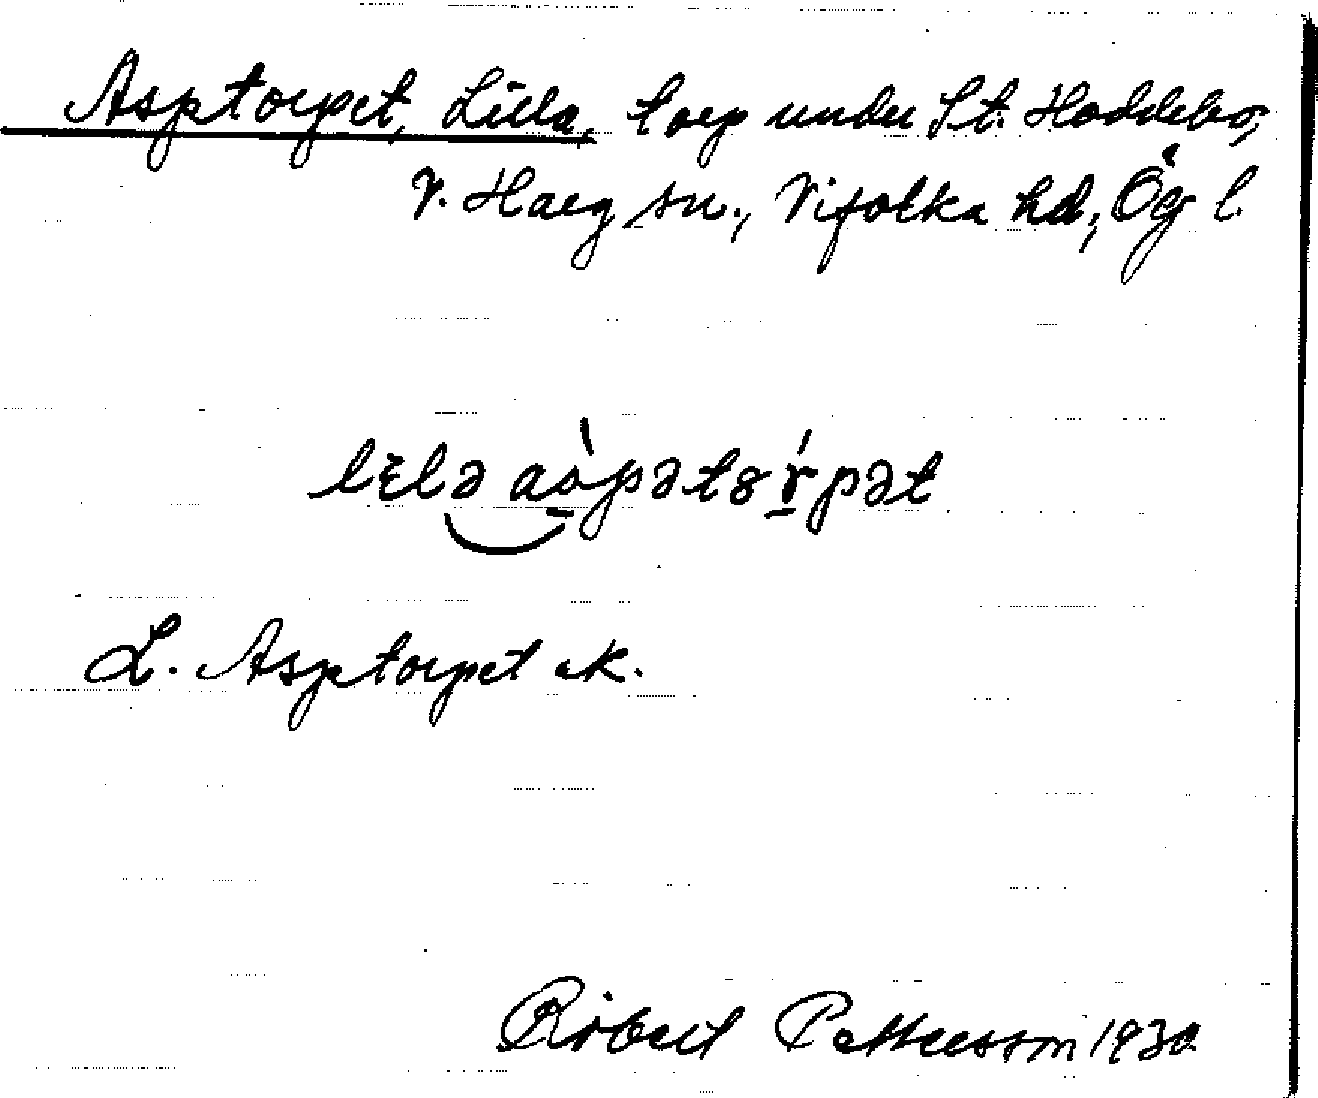 Asptorpet, Lilla, torp under St. Hoddebo,
V. Harg sn., Vifolka hd, Ög l.
L. Asptorpet ek.
Robert Pettersson 1930